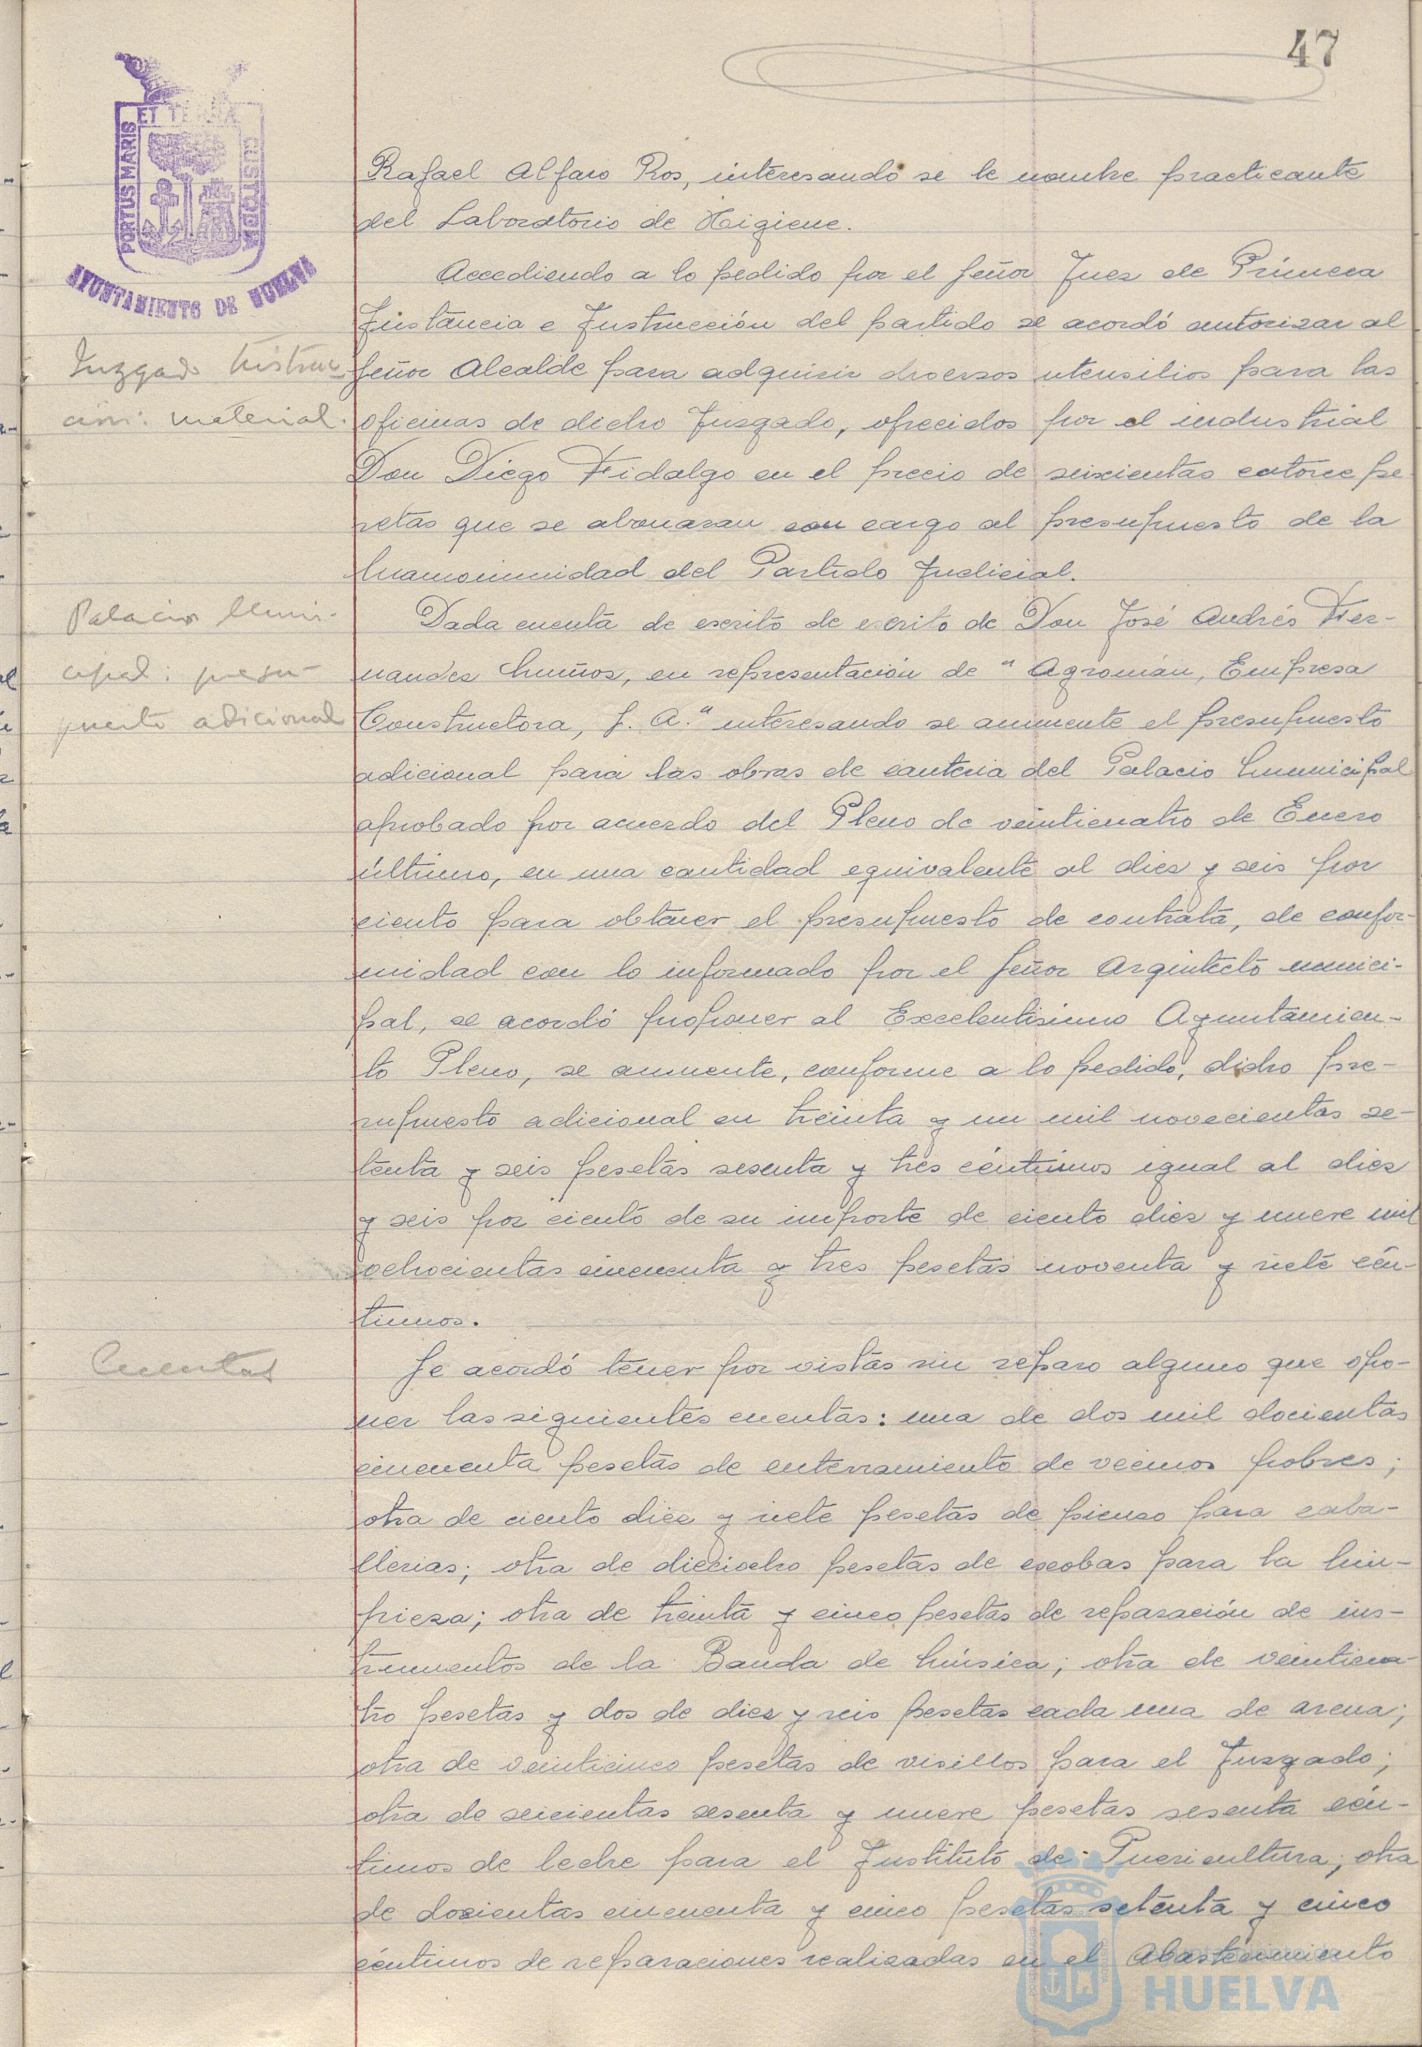 47
PORTUS MARIS
ET TERRA
CUSTODIA
AYUNTAMIENTO DE HUELVA
Rafael Alfaro Ros, interesando se le nombre practicante
del Laboratorio de Higiene.
Accediendo a lo pedido por el Señor Juez de Primera
Instancia e Instrucción del partido se acordó autorizar al
Juzgado Instruc
Señor Alcalde para adquirir diversos utensilios para las
ción: material.
oficinas de dicho Juzgado, ofrecidos por el industrial
Don Diego Fidalgo en el precio de seiscientas catorce pe-
setas que se abonaran con cargo al presupuesto de la
Mancomunidad del Partido Judicial.
Palacio Muni-
Dada cuenta de escrito de escrito de Don José Andrés Fer-
cipal: presu-
nandez Muños, en representación de "Agroman, Empresa
puesto adicional
Constructora, S. A." interesando se aumente el presupuesto
adicional para las obras de canteria del Palacio Municipal
aprobado por acuerdo del Pleno de veinticuatro de Enero
último, en una cantidad equivalente al diez y seis por
ciento para obtener el presupuesto de contrata, de confor-
midad con lo informado por el Señor Arquitecto munici-
pal, se acordó proponer al Excelentisimo Ayuntamien-
to Pleno, se aumente, conforme a lo pedido, dicho pre-
supuesto adicional en treinta y un mil novecientas se-
tenta y seis pesetas sesenta y tres céntimos igual al diez
y seis por ciento de su importe de ciento diez y nueve mil
ochocientas cincuenta y tres pesetas noventa y siete cén-
timos.
Cuentas
Se acordó tener por vistas sin reparo alguno que opo-
ner las siguientes cuentas: una de dos mil docientas
cincuenta pesetas de enterramiento de vecinos pobres;
otra de ciento diez y siete pesetas de pienso para caba-
llerias; otra de dieciocho pesetas de escobas para la lim-
pieza; otra de treinta y cinco pesetas de reparación de ins-
trumentos de la Banda de Música; otra de veinticua-
tro pesetas y dos de diez y seis pesetas cada una de arena;
otra de veinticinco pesetas de visillos para el Juzgado;
otra de seicientas sesenta y nueve pesetas sesenta cén-
timos de leche para el Instituto de Puericultura; otra
de docientas cincuenta y cinco pesetas setenta y cinco
céntimos de reparaciones realizadas en el Abastecimiento
HUELVA